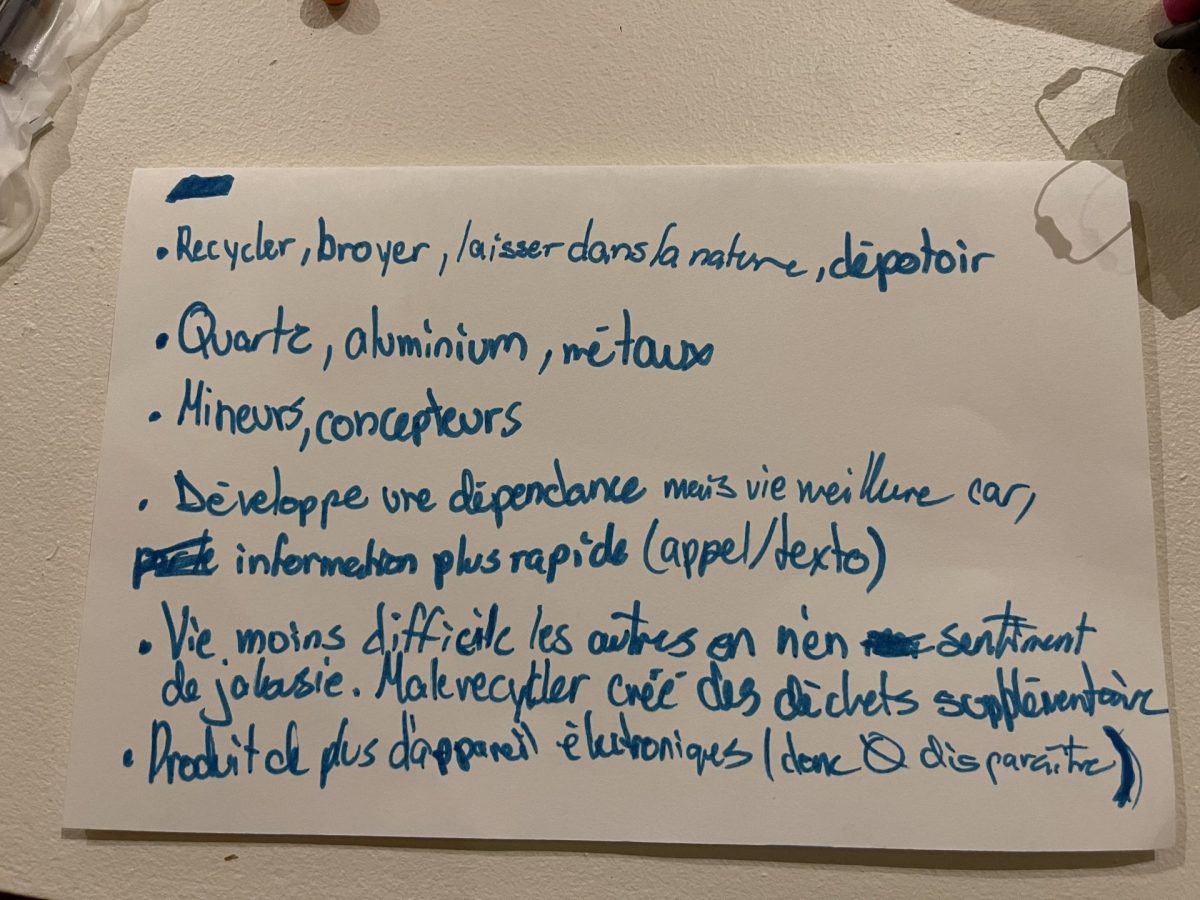 • Recycler, broyer, laisser dans la nature, dépotoir
• Quartz, aluminium, métaux
• Mineurs, concepteurs
• Développe une dépendance mais vie meilleure car,
information plus rapide (appel/texto)
• Vie moins difficile les autres on n'en sentiment
de jalousie. Malrecycler créé des déchets supplémentaire
• Produit de plus d'appareil électroniques (donc disparaître)